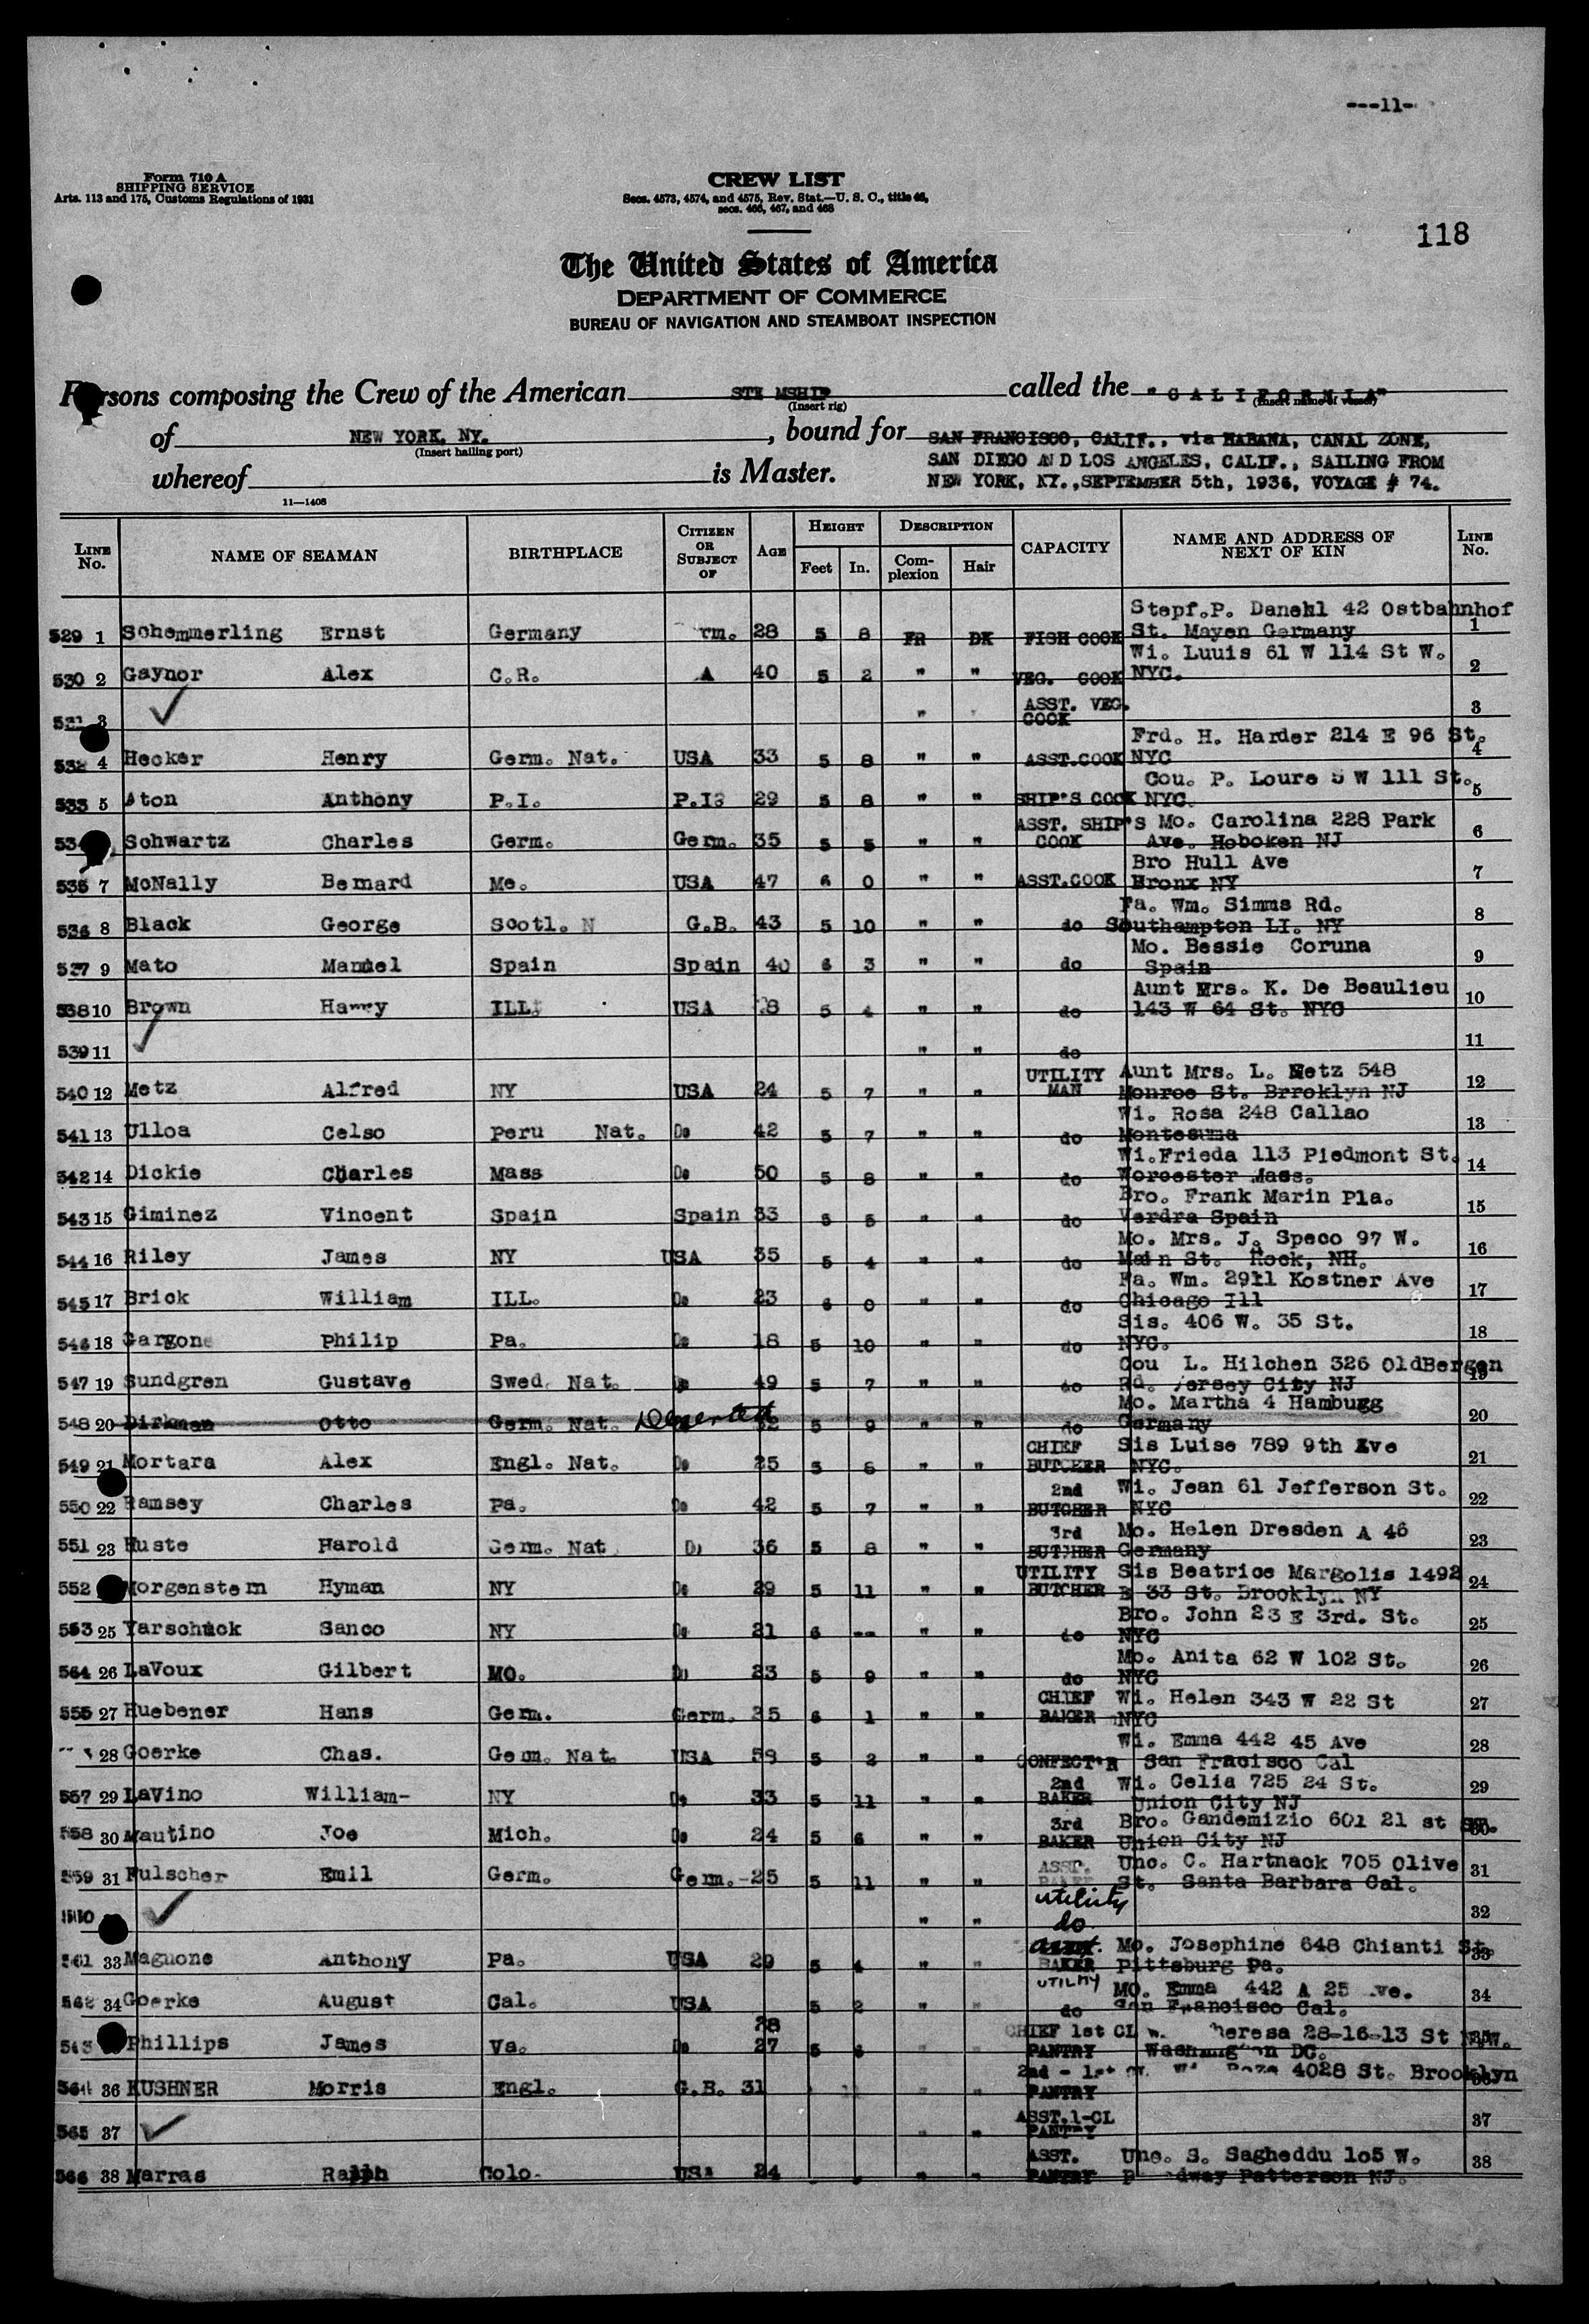 ---11-
Form 710 A
SHIPPING SERVICE
Arts. 113 and 175, Customs Regulations of 1931
CREW LIST
Secs. 4573, 4574, and 4575, Rev. Stat.—U. S. C., title 46,
secs. 466, 467, and 468
118
The United States of America
DEPARTMENT OF COMMERCE
BUREAU OF NAVIGATION AND STEAMBOAT INSPECTION
Persons composing the Crew of the American STE MSHIP called the "CALIFORNIA"
(Insert rig) (Insert name of vessel)
of NEW YORK, NY. , bound for SAN FRANCISCO, CALIF., via HABANA, CANAL ZONE,
(Insert hailing port)
SAN DIEGO AND LOS ANGELES, CALIF., SAILING FROM
whereof is Master. NEW YORK, NY.,SEPTEMBER 5th, 1936, VOYAGE # 74.
11—1408
LINE No. NAME OF SEAMAN BIRTHPLACE CITIZEN OR SUBJECT OF AGE HEIGHT Feet In. DESCRIPTION Complexion Hair CAPACITY NAME AND ADDRESS OF NEXT OF KIN LINE No.
Stepf.P. Danehl 42 Ostbahnhof
529 1 Schemmerling Ernst Germany rm. 28 5 8 FR DK FISH COOK St. Mayen Germany 1
Wi. Luuis 61 W 114 St W.
530 2 Gaynor Alex C.R. A 40 5 2 " " VEG. COOK NYC. 2
ASST. VEG.
3 " COOK 3
Frd. H. Harder 214 E 96 St.
532 4 Hecker Henry Germ. Nat. USA 33 5 8 " " ASST.COOK NYC 4
Cou. P. Loure 5 W 111 St.
533 5 Aton Anthony P.I. P.IS 29 5 8 " " SHIP'S COOK NYC. 5
ASST. SHIP'S Mo. Carolina 228 Park
53 Schwartz Charles Germ. Germ. 35 5 5 " " COOK Ave. Hoboken NJ 6
Bro Hull Ave
535 7 McNally Bernard Me. USA 47 6 0 " " ASST.COOK Bronx NY 7
Fa. Wm. Simms Rd.
536 8 Black George Scotl. N G.B. 43 5 10 " " do Southampton LI. NY 8
Mo. Bessie Coruna
537 9 Mato Manuel Spain Spain 40 6 3 " " do Spain 9
Aunt Mrs. K. De Beaulieu
538 10 Brown Harry ILL. USA 8 5 4 " " do 143 W 64 St. NYC 10
539 11 " " do 11
UTILITY Aunt Mrs. L. Metz 548
540 12 Metz Alfred NY USA 24 5 7 " " MAN Monroe St. Brroklyn NJ 12
Wi. Rosa 248 Callao
541 13 Ulloa Celso Peru Nat. Do 42 5 7 " " do Montesuma 13
Wi.Frieda 113 Piedmont St.
542 14 Dickie Charles Mass Do 50 5 8 " " do Worcester Mass. 14
Bro. Frank Marin Pla.
543 15 Giminez Vincent Spain Spain 33 5 5 " " do Verdra Spain 15
Mo. Mrs. J. Speco 97 W.
544 16 Riley James NY USA 35 5 4 " " do Main St. Rock, NH. 16
Fa. Wm. 2911 Kostner Ave
545 17 Brick William ILL. Do 23 6 0 " " do Chicago Ill 17
Sis. 406 W. 35 St.
546 18 Gargone Philip Pa. Do 18 5 10 " " do NYC. 18
Cou L. Hilchen 326 OldBergen
547 19 Sundgren Gustave Swed. Nat. Do 49 5 7 " " do Rd. Jersey City NJ 19
Mo. Martha 4 Hambugg
548 20 Dirkman Otto Germ. Nat. Deserted 5 9 " " do Germany 20
CHIEF Sis Luise 789 9th Ave
549 21 Mortara Alex Engl. Nat. Do 25 5 6 " " BUTCHER NYC. 21
2nd Wi. Jean 61 Jefferson St.
550 22 Ramsey Charles Pa. Do 42 5 7 " " BUTCHER NYC 22
3rd Mo. Helen Dresden A 46
551 23 Huste Harold Germ. Nat Do 36 5 8 " " BUTCHER Germany 23
UTILITY Sis Beatrice Margolis 1492
552 Morgenstern Hyman NY Do 29 5 11 " " BUTCHER E 33 St. Brooklyn NY 24
Bro. John 23 E 3rd. St.
553 25 Yarschuck Sanco NY Do 21 6 -- " " do NYC 25
Mo. Anita 62 W 102 St.
554 26 LaVoux Gilbert MO. Do 23 5 9 " " do NYC 26
CHIEF Wi. Helen 343 W 22 St
555 27 Huebener Hans Germ. Germ. 35 6 1 " " BAKER NYC 27
Wi. Emma 442 45 Ave
28 Goerke Chas. Germ. Nat. USA 59 5 2 " " CONFECT'R San Fracisco Cal 28
2nd Wi. Celia 725 24 St.
557 29 LaVino William- NY Do 33 5 11 " " BAKER Union City NJ 29
3rd Bro. Gandemizio 601 21 st
558 30 Mautino Joe Mich. Do 24 5 6 " " BAKER Union City NJ 30
ASST. Unc. C. Hartnack 705 Olive
559 31 Fulscher Emil Germ. Germ.-25 5 11 " " BAKER St. Santa Barbara Cal. 31
utility
" " do 32
asst. Mo. Josephine 648 Chianti St.
561 33 Magnone Anthony Pa. USA 29 5 4 " " BAKER Pittsburg Pa. 33
UTILITY MO. Emma 442 A 25 ve.
562 34 Goerke August Cal. USA 28 5 2 " do San Francisco Cal. 34
CHIEF 1st CL W. heresa 28-16-13 St N.W.
563 Phillips James Va. Do 27 5 6 " " PANTRY Washington DC. 35
2nd - 1st 4028 St. Brooklyn
564 36 KUSHNER Morris Engl. G.B. 31 " " PANTRY 36
ASST.1-CL
565 37 " " PANTRY 37
ASST. Unc. S. Sagheddu 105 W.
566 38 Marras Ralph Colo. USA 24 " " PANTRY dway Patterson NJ. 38